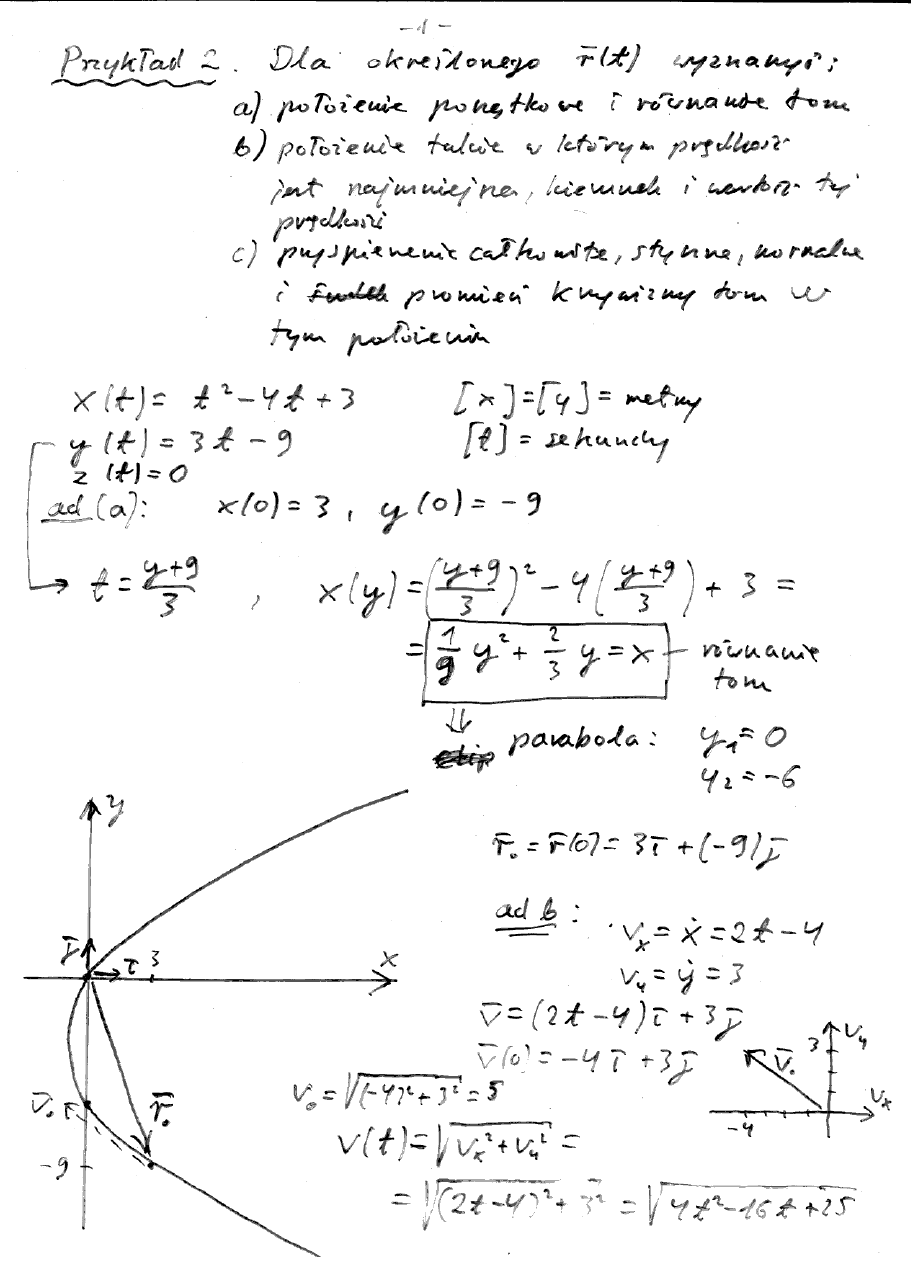 -1-
Przykład 2. Dla określonego r̄(t) wyznaczyć:
a) położenie początkowe i równanie toru
b) położenie takie w którym prędkość
jest najmniejsza, kierunek i wartość tej
prędkości
c) przyspieszenie całkowite, styczne, normalne
i promień krzywizny toru w
tym położeniu
x(t) = t² - 4t + 3 [x]=[y]= metry
y(t) = 3t - 9 [t] = sekundy
z(t) = 0
ad (a): x(0) = 3, y(0) = -9
→ t = (y+9)/3 , x(y) = ((y+9)/3)² - 4((y+9)/3) + 3 =
= 1/9 y² + 2/3 y = x – równanie
toru
⇓
parabola: y₁ = 0
y₂ = -6
r̄₀ = r̄(0) = 3ī + (-9)j̄
ad b: vₓ = ẋ = 2t - 4
v_y = ẏ = 3
v̄ = (2t - 4)ī + 3j̄
v̄(0) = -4ī + 3j̄
v₀ = √((-4)² + 3²) = 5
v(t) = √(vₓ² + v_y²) =
= √((2t-4)² + 3²) = √(4t² - 16t + 25)
y
j̄ ī 3 x
v̄₀ r̄₀
-9
3 v_y
v̄₀
-4 vₓ